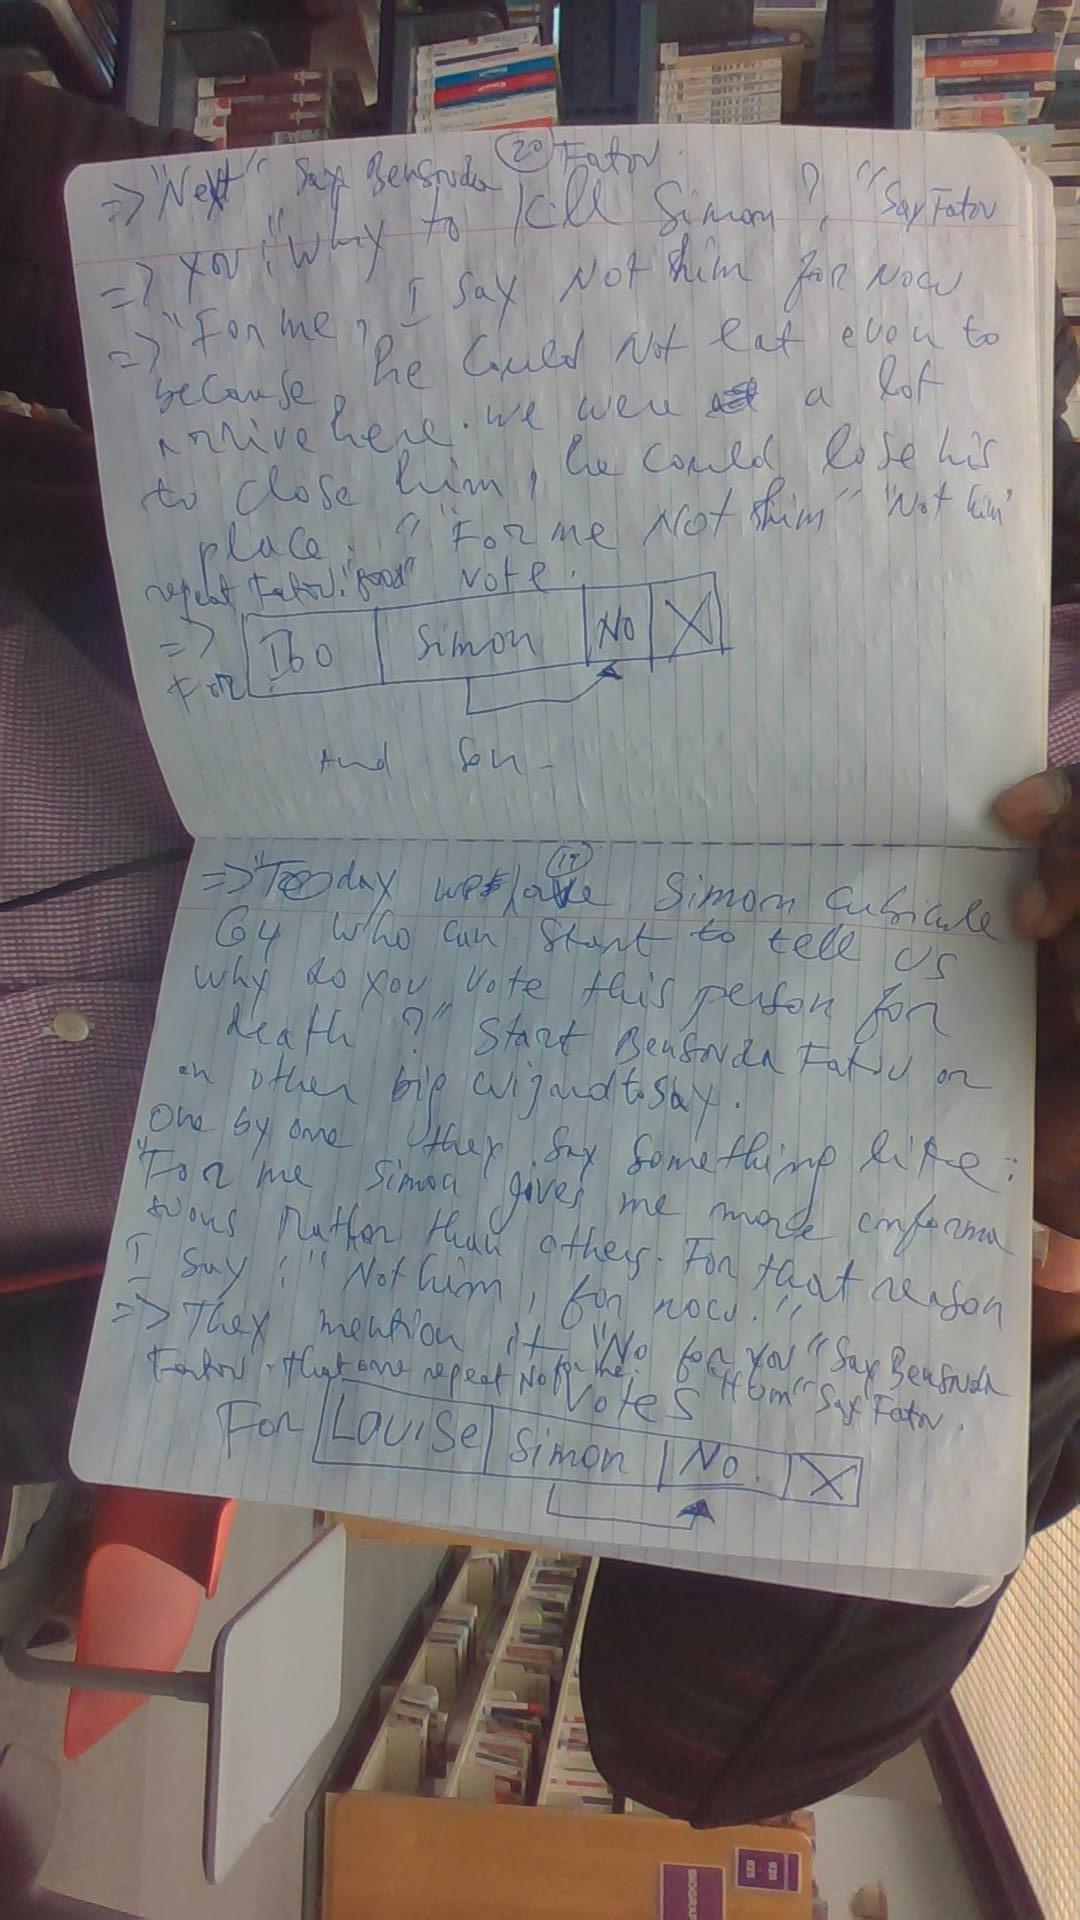 (20)
=> "Next" Say Bensouda Fatou.
=> you: "Why to kill Simon?" Say Fatou
=> "For me, I say Not him for Now
because, he could Not eat even to
arrive here. we were a lot
to close him, he could lose his
place." "For me Not him" "Not him"
repeat Fatou. "Good" Note.
=> For Ibo Simon No X
And Son -
(19)
=> "Today we have Simon Cubicule
G4 Who can Start to tell us
why do you vote this person for
death?" Start Bensouda Fatou or
an other big wizard to say.
One by one they say something like:
"For me Simon gives me more informa
tions rather than others. For that reason
I Say: "Not him, for now."
=> They mention it "No for you" Say Bensouda
Fatou. that one repeat No for me. "Hum" Say Fatou.
Votes
For Louise Simon No. X
920
925